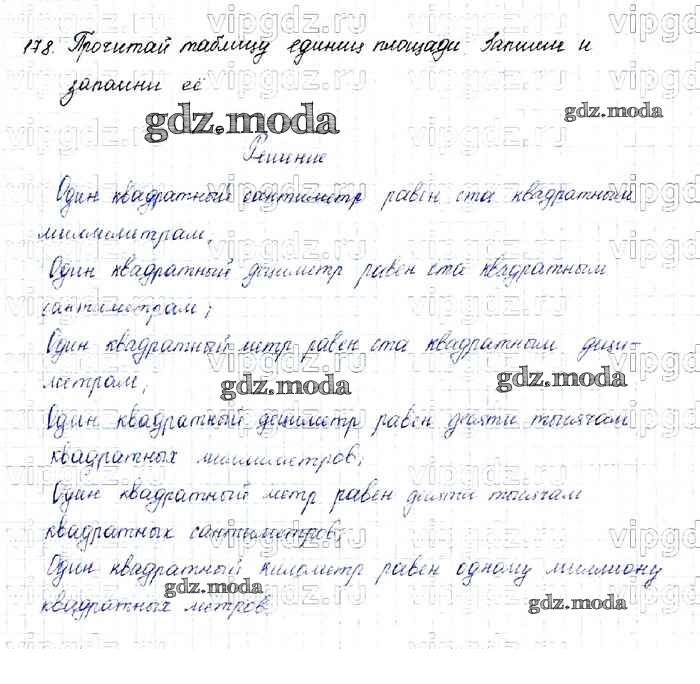 178. Прочитай таблицу единиц площади. Запиши и
запомни её
gdz.moda
gdz.moda
Решение
Один квадратный сантиметр равен ста квадратным
миллиметрам;
Один квадратный дециметр равен ста квадратным
сантиметрам;
Один квадратный метр равен ста квадратным деци-
метрам;
gdz.moda
gdz.moda
Один квадратный дециметр равен десяти тысячам
квадратных миллиметров;
Один квадратный метр равен десяти тысячам
квадратных сантиметров;
Один квадратный километр равен одному миллиону
квадратных метров.
gdz.moda
gdz.moda